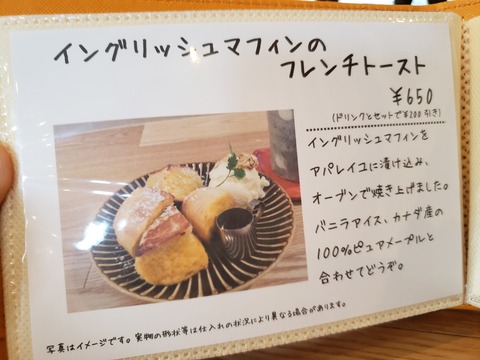 イングリッシュマフィンの
フレンチトースト
¥650
(ドリンクとセットで¥200引き)
イングリッシュマフィンを
アパレイユに漬け込み、
オーブンで焼き上げました。
バニラアイス、カナダ産の
100%ピュアメープルと
合わせてどうぞ。
写真はイメージです。実物の形状等は仕入れの状況により異なる場合があります。